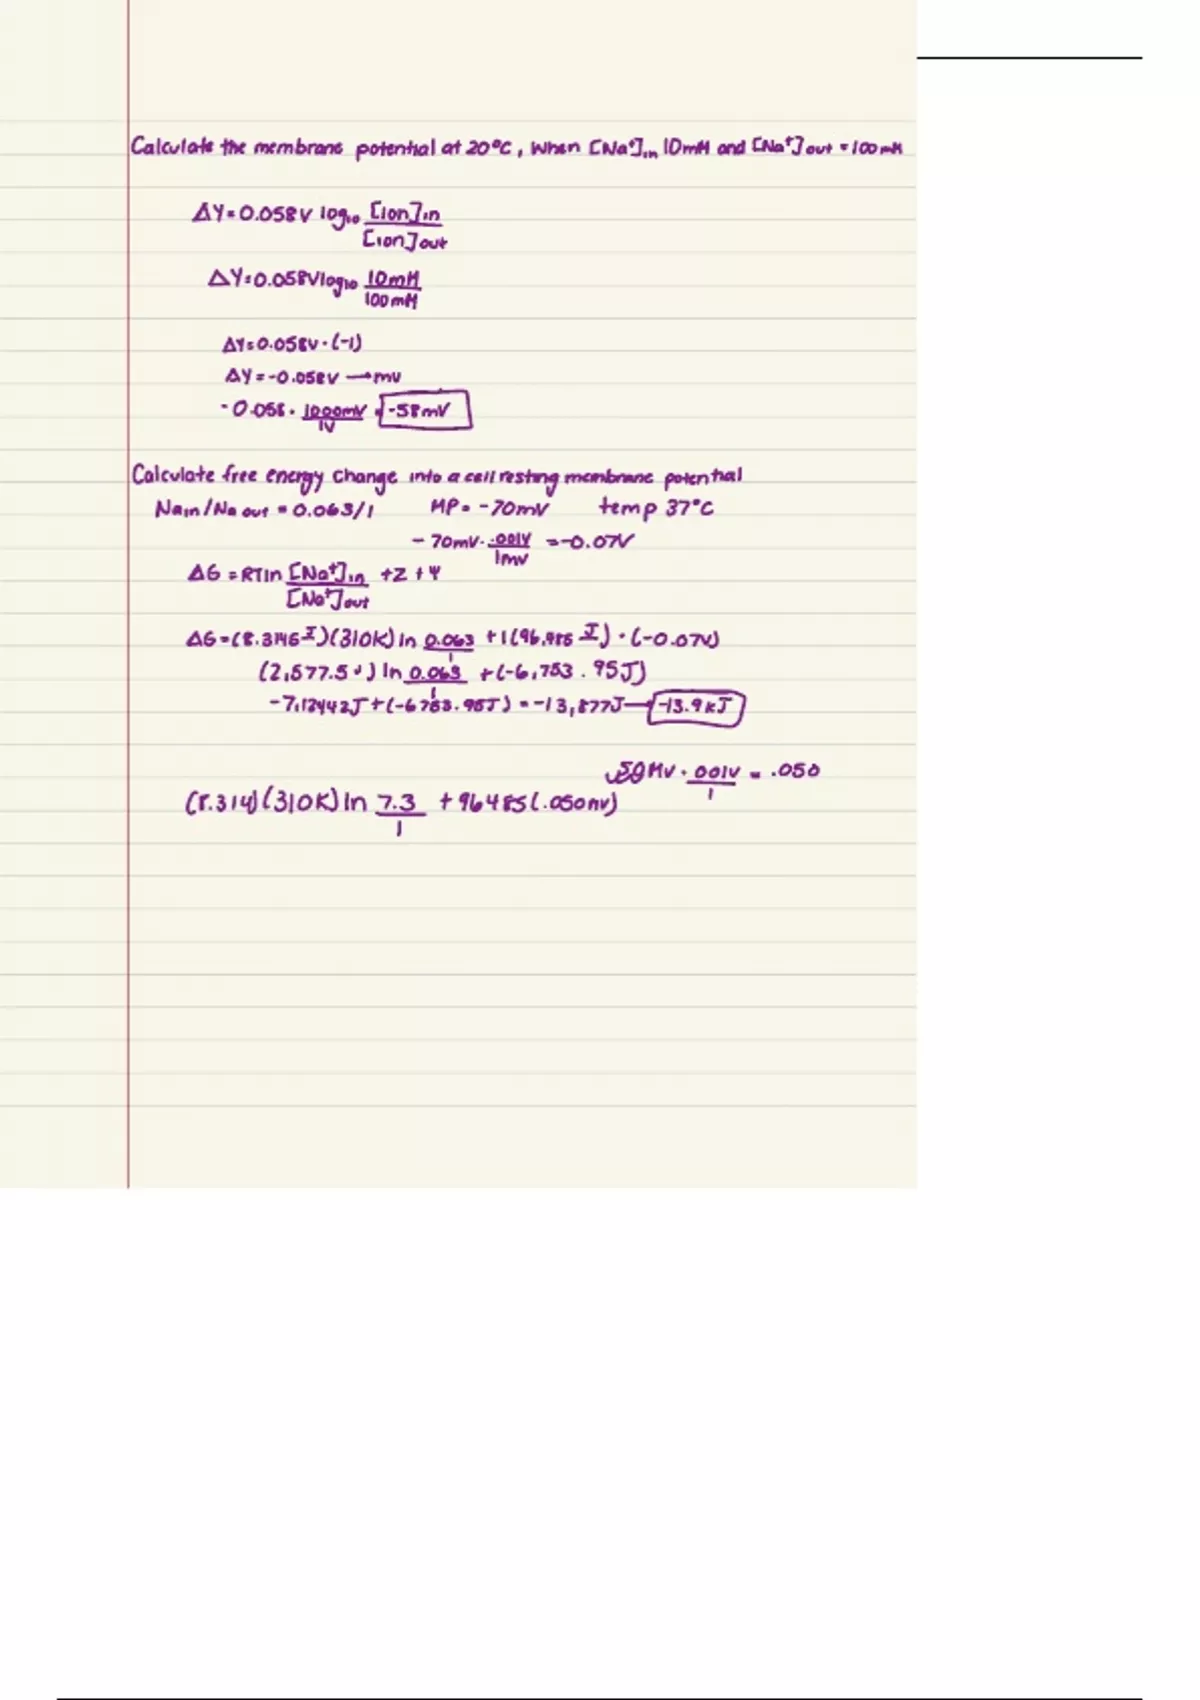 Calculate the membrane potential at 20°C, when [Na⁺]in 10mM and [Na⁺]out = 100mM
ΔY=0.058V log₁₀ [ion]in / [ion]out
ΔY=0.058Vlog₁₀ 10mM / 100mM
ΔY=0.058V·(-1)
ΔY=-0.058V→mV
-0.058· 1000mV / 1V = -58mV
Calculate free energy change into a cell resting membrane potential
Nain/Na out = 0.063/1 MP= -70mV temp 37°C
-70mV· .001V / 1mV =-0.07V
ΔG=RTln [Na⁺]in / [Na⁺]out +Z+Ψ
ΔG=(8.3145 J)(310K)ln 0.063 / 1 +1(96,485 J)·(-0.07V)
(2,577.5J)ln 0.063 / 1 +(-6,753.95J)
-7,12442J+(-6753.95J)=-13,877J→-13.9kJ
50Mv· 001V / 1 = .050
(8.314)(310K)ln 7.3 / 1 +96485(.050mV)